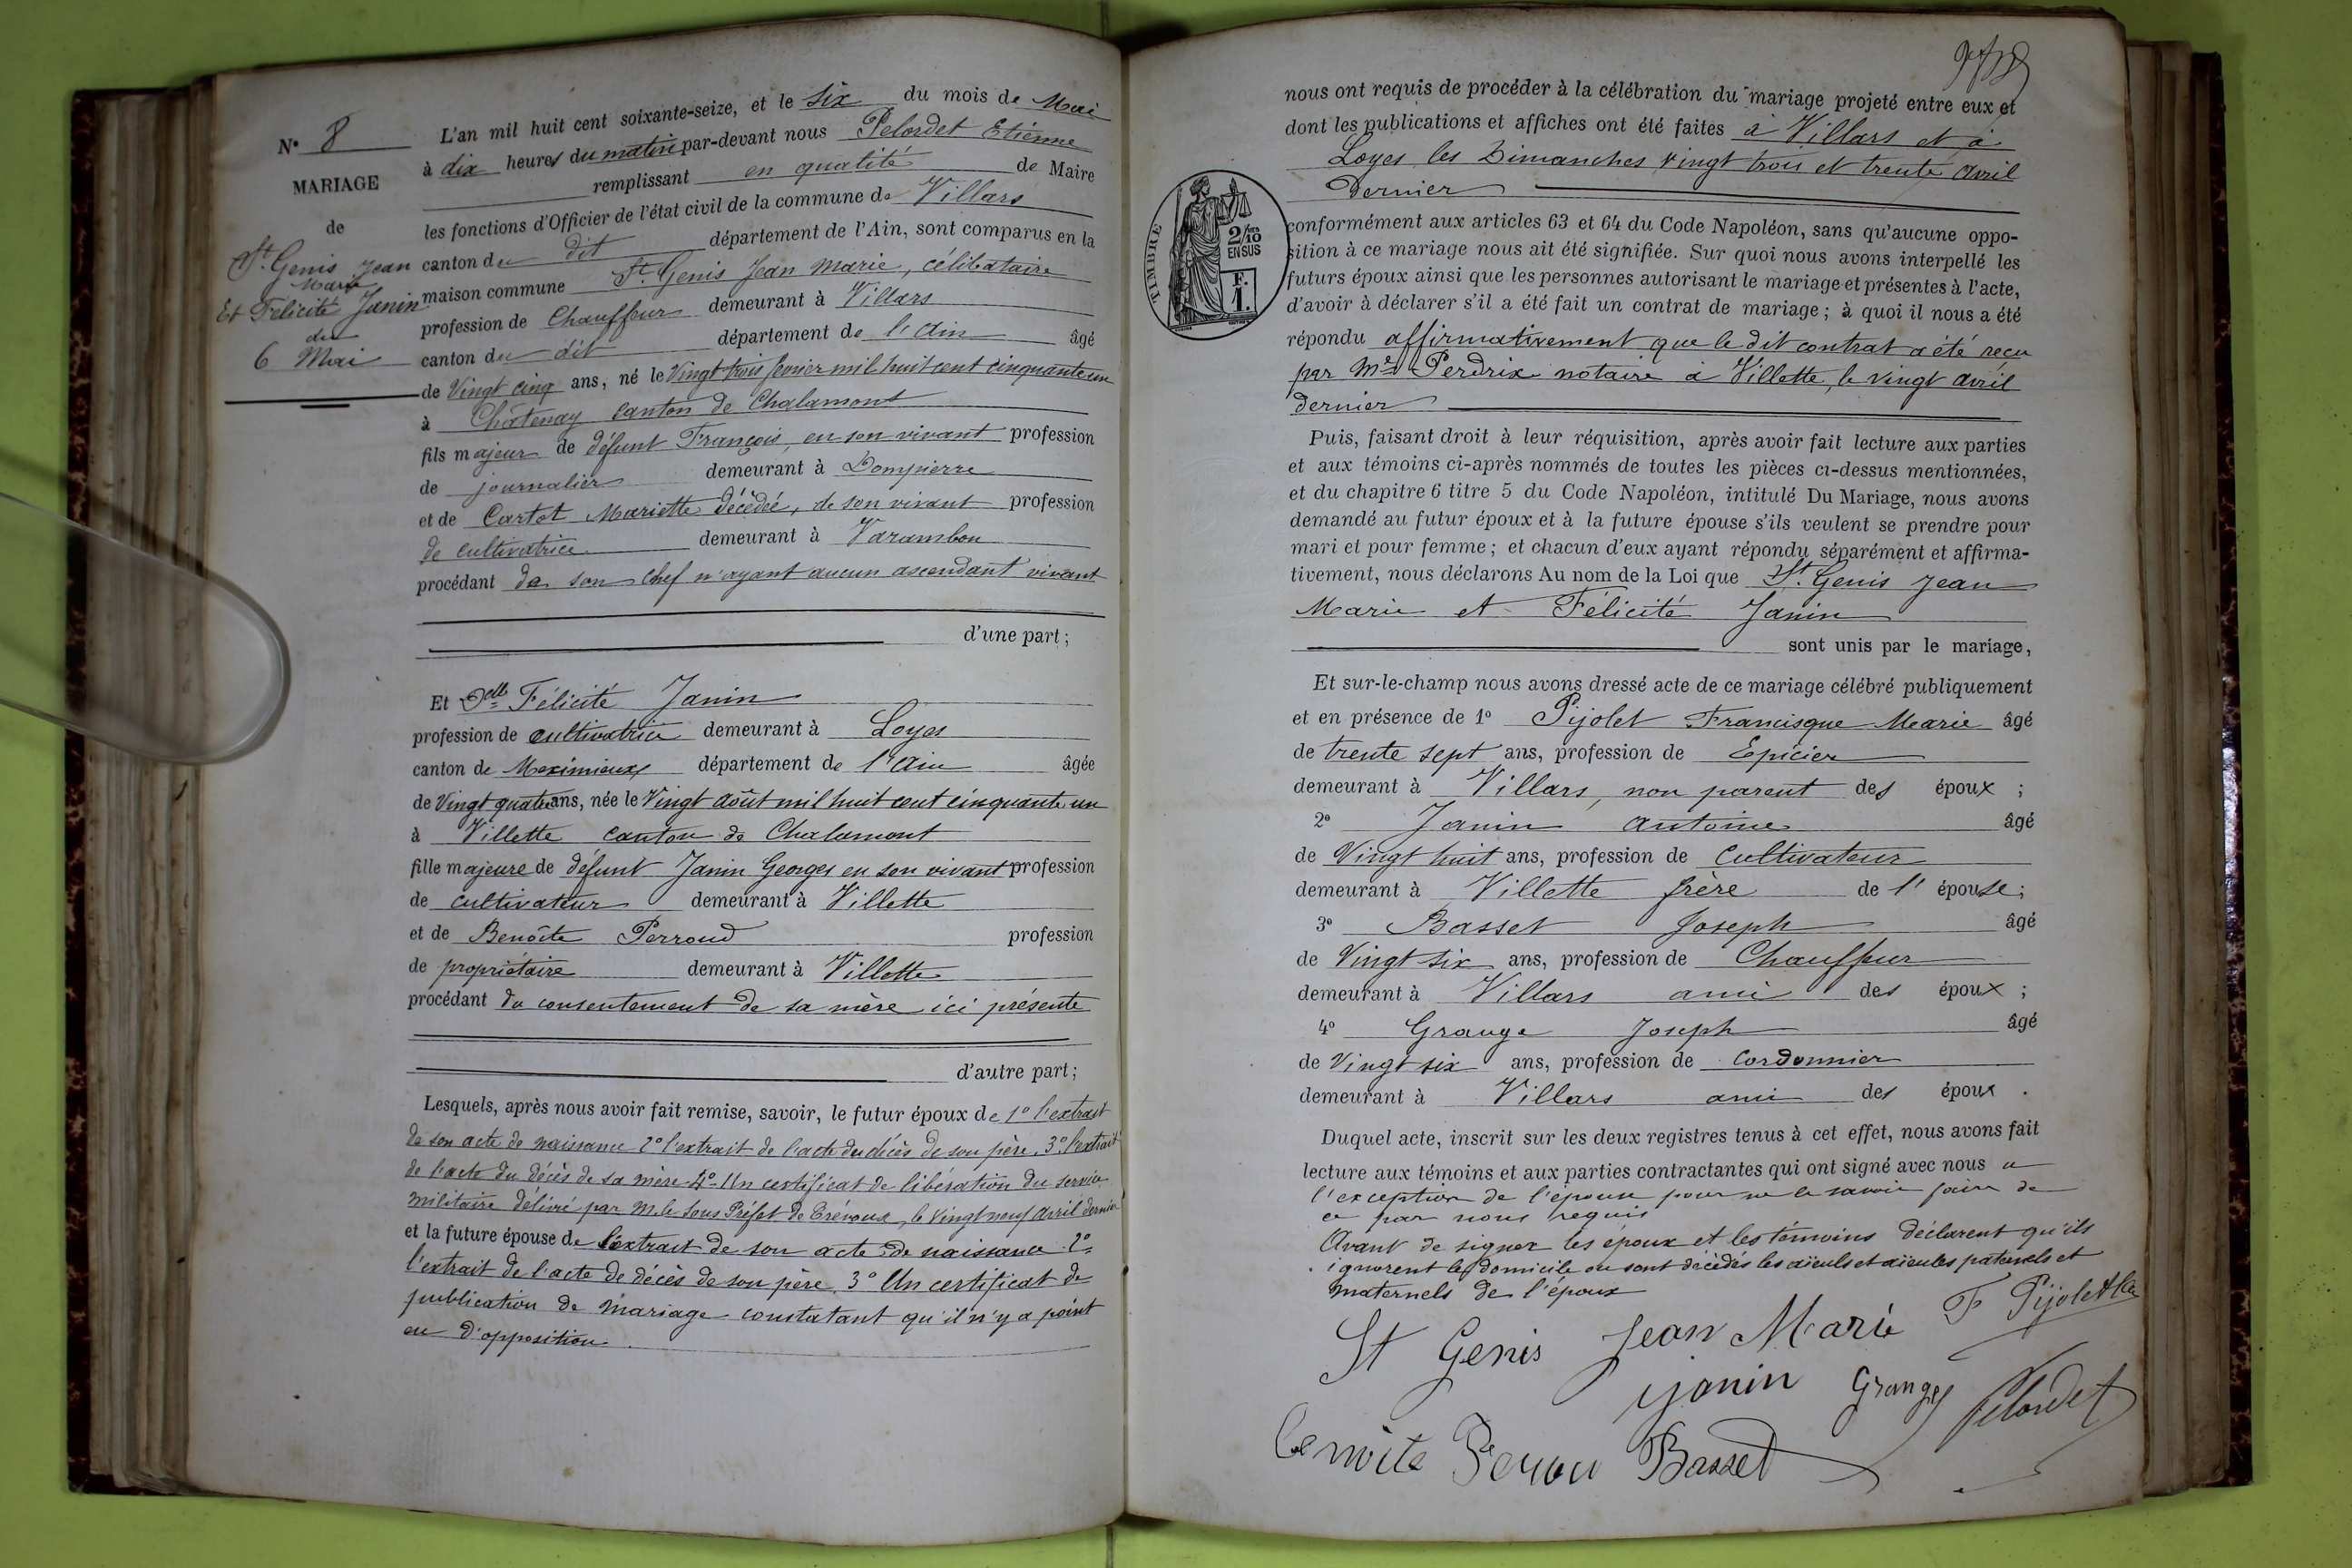 N° 8
MARIAGE
de
St. Genis Jean
Marie
Et Félicité Janin
du
6 Mai
L'an mil huit cent soixante-seize, et le six du mois de Mai
à dix heures du matin par-devant nous Pelordet Etienne
remplissant en qualité de Maire
les fonctions d'Officier de l'état civil de la commune de Villars
canton du dit département de l'Ain, sont comparus en la
maison commune St. Genis Jean Marie, célibataire
profession de Chauffeur demeurant à Villars
canton du dit département de l'Ain âgé
de Vingt cinq ans, né le Vingt trois février mil huit cent cinquante un
à Châtenay canton de Chalamont
fils majeur de défunt François, en son vivant profession
de journalier demeurant à Dompierre
et de Cartet Mariette décédée, de son vivant profession
de cultivatrice demeurant à Varambon
procédant de son chef n'ayant aucun ascendant vivant
d'une part ;
Et Delle Félicité Janin
profession de cultivatrice demeurant à Loyes
canton de Meximieux département de l'Ain âgée
de Vingt quatre ans, née le Vingt août mil huit cent cinquante un
à Villette canton de Chalamont
fille majeure de défunt Janin Georges en son vivant profession
de cultivateur demeurant à Villette
et de Benoîte Perroud profession
de propriétaire demeurant à Villette
procédant du consentement de sa mère ici présente
d'autre part ;
Lesquels, après nous avoir fait remise, savoir, le futur époux de 1° l'extrait
de son acte de naissance 2° l'extrait de l'acte du décès de son père, 3° l'extrait
de l'acte du décès de sa mère 4° Un certificat de libération du service
militaire délivré par M. le Sous Préfet de Trévoux, le vingt neuf avril dernier
et la future épouse de l'extrait de son acte de naissance 2°
l'extrait de l'acte de décès de son père, 3° Un certificat de
publication de mariage constatant qu'il n'y a point
eu d'opposition
nous ont requis de procéder à la célébration du mariage projeté entre eux et
dont les publications et affiches ont été faites à Villars et à
Loyes les Dimanches vingt trois et trente avril
dernier
TIMBRE
2/10
EN SUS
F.
1.
conformément aux articles 63 et 64 du Code Napoléon, sans qu'aucune oppo-
sition à ce mariage nous ait été signifiée. Sur quoi nous avons interpellé les
futurs époux ainsi que les personnes autorisant le mariage et présentes à l'acte,
d'avoir à déclarer s'il a été fait un contrat de mariage ; à quoi il nous a été
répondu affirmativement que le dit contrat a été reçu
par Me Perdrix notaire à Villette, le vingt avril
dernier
Puis, faisant droit à leur réquisition, après avoir fait lecture aux parties
et aux témoins ci-après nommés de toutes les pièces ci-dessus mentionnées,
et du chapitre 6 titre 5 du Code Napoléon, intitulé Du Mariage, nous avons
demandé au futur époux et à la future épouse s'ils veulent se prendre pour
mari et pour femme ; et chacun d'eux ayant répondu séparément et affirma-
tivement, nous déclarons Au nom de la Loi que St. Genis Jean
Marie et Félicité Janin
sont unis par le mariage,
Et sur-le-champ nous avons dressé acte de ce mariage célébré publiquement
et en présence de 1° Pijolet Francisque Marie âgé
de trente sept ans, profession de Epicier
demeurant à Villars, non parent des époux ;
2° Janin Antoine âgé
de Vingt huit ans, profession de Cultivateur
demeurant à Villette frère de l'épouse ;
3° Basset Joseph âgé
de Vingt six ans, profession de Chauffeur
demeurant à Villars ami des époux ;
4° Grange Joseph âgé
de Vingt six ans, profession de cordonnier
demeurant à Villars ami des époux .
Duquel acte, inscrit sur les deux registres tenus à cet effet, nous avons fait
lecture aux témoins et aux parties contractantes qui ont signé avec nous a
l'exception de l'épouse pour ne le savoir faire de
ce par nous requis
Avant de signer les époux et les témoins déclarent qu'ils
ignorent le domicile ou sont décédés les aïeuls et aïeules paternels et
maternels de l'époux
St Genis Jean Marie F Pijolet
Janin Grange Pelordet
benoite Perou Basset